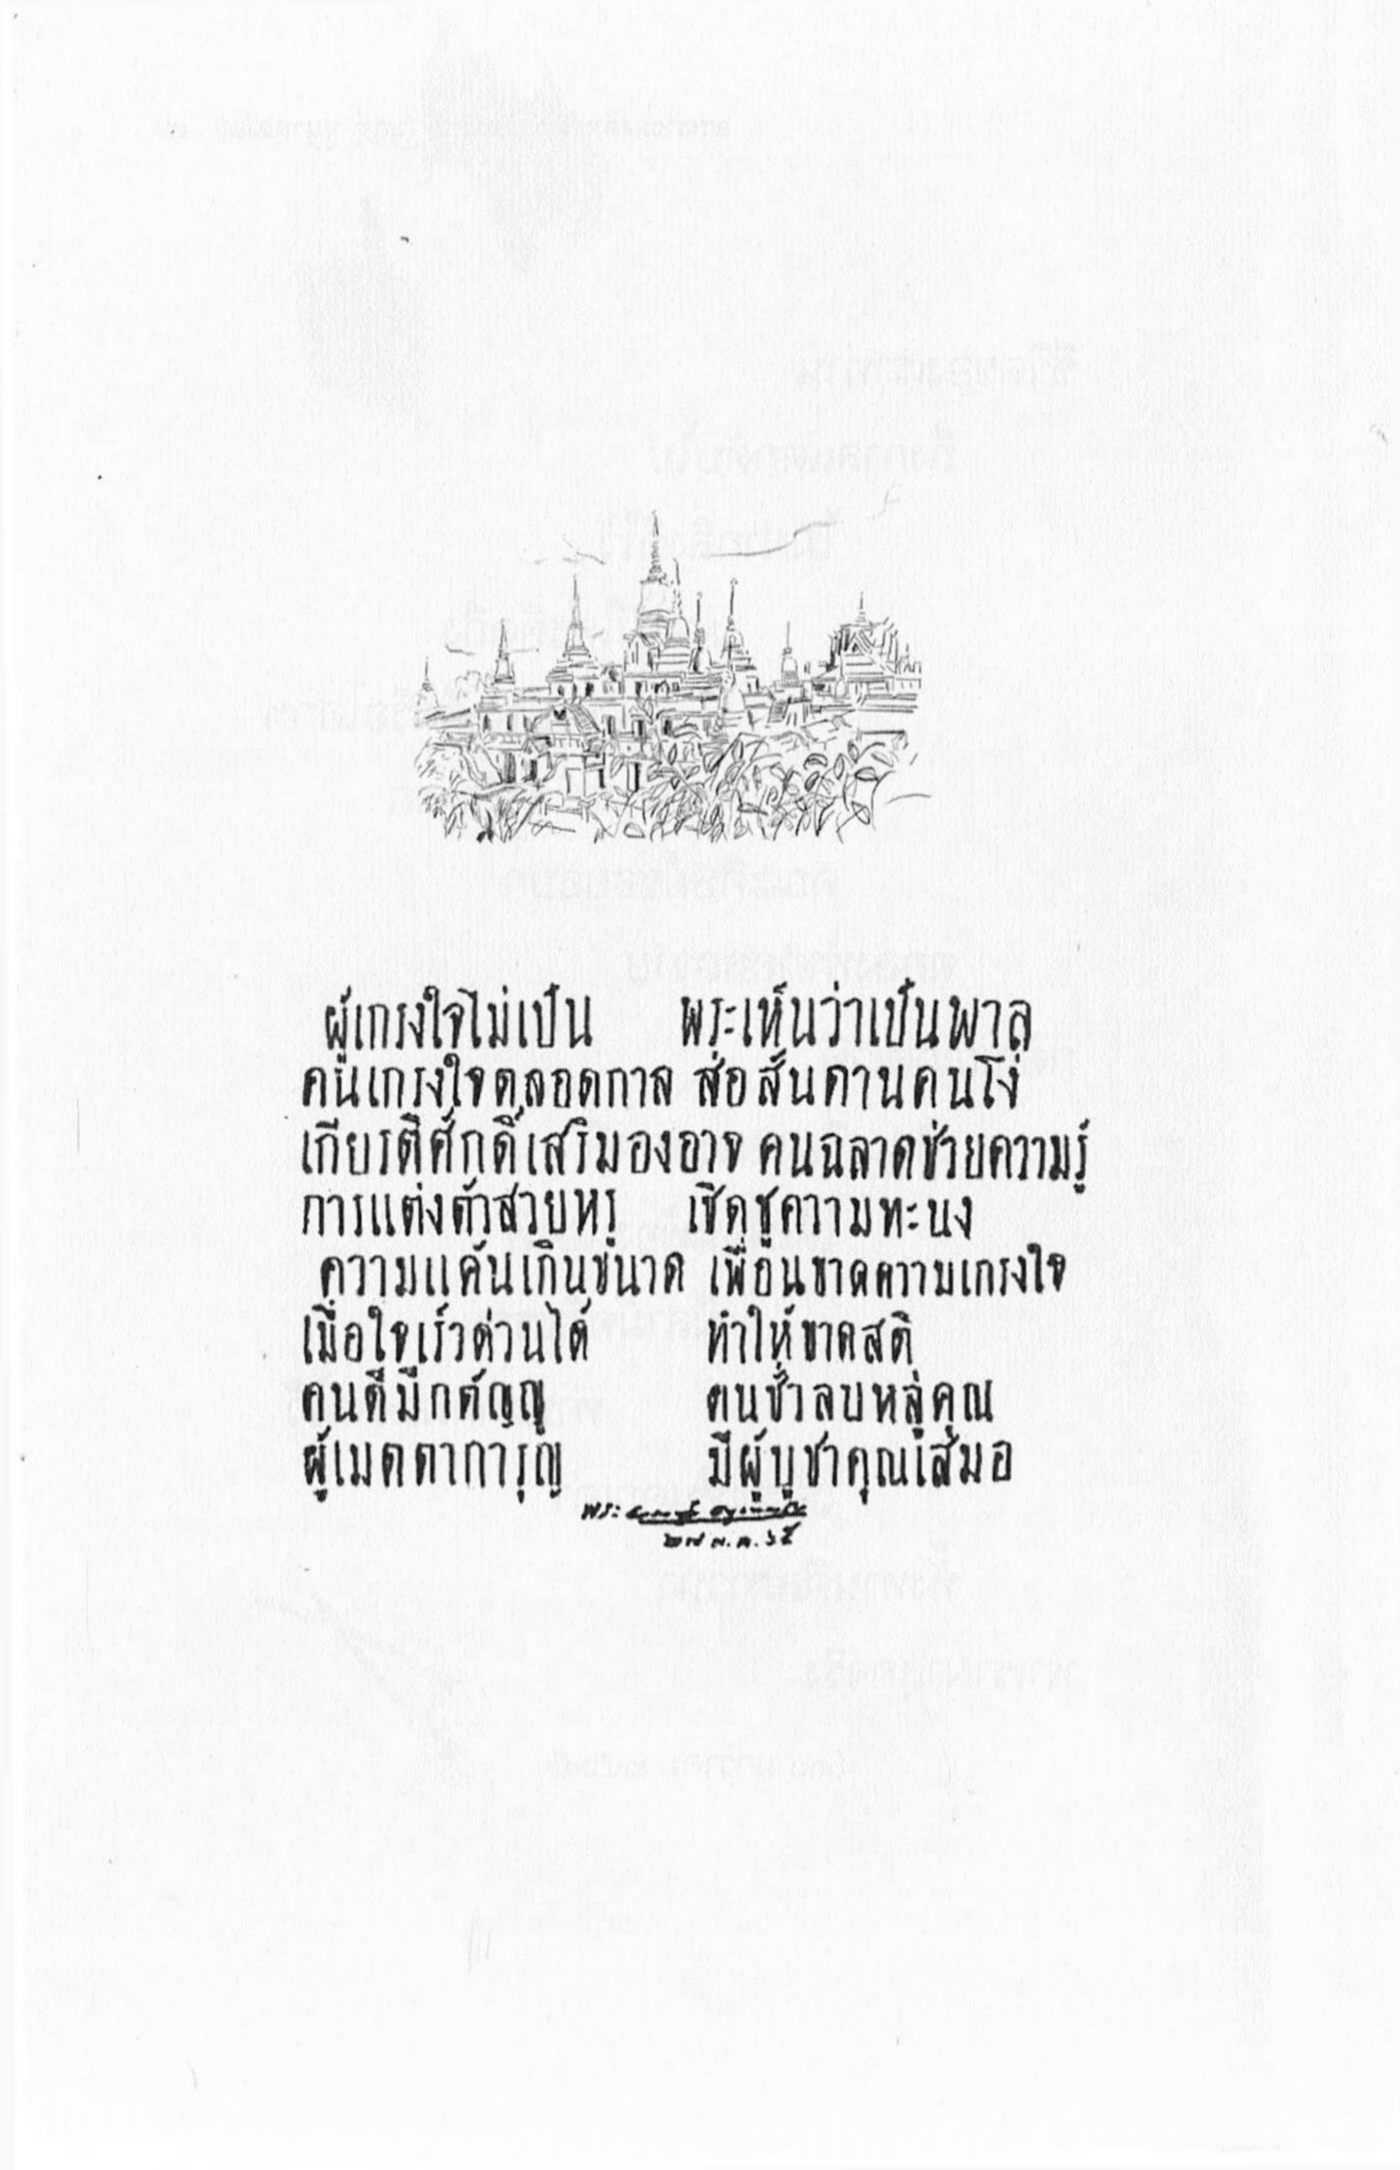 ผู้เกรงใจไม่เป็น พระเห็นว่าเป็นพาล
คนเกรงใจตลอดกาล ส่อสันดานคนโง่
เกียรติศักดิ์เสริมองอาจ คนฉลาดช่วยความรู้
การแต่งตัวสวยหรู เชิดชูความทะนง
ความแค้นเกินขนาด เพื่อนขาดความเกรงใจ
เมื่อใจเร็วด่วนได้ ทำให้ขาดสติ
คนดีมีกตัญญู คนชั่วลบหลู่คุณ
ผู้เมตตาการุญ มีผู้บูชาคุณเสมอ
พระ